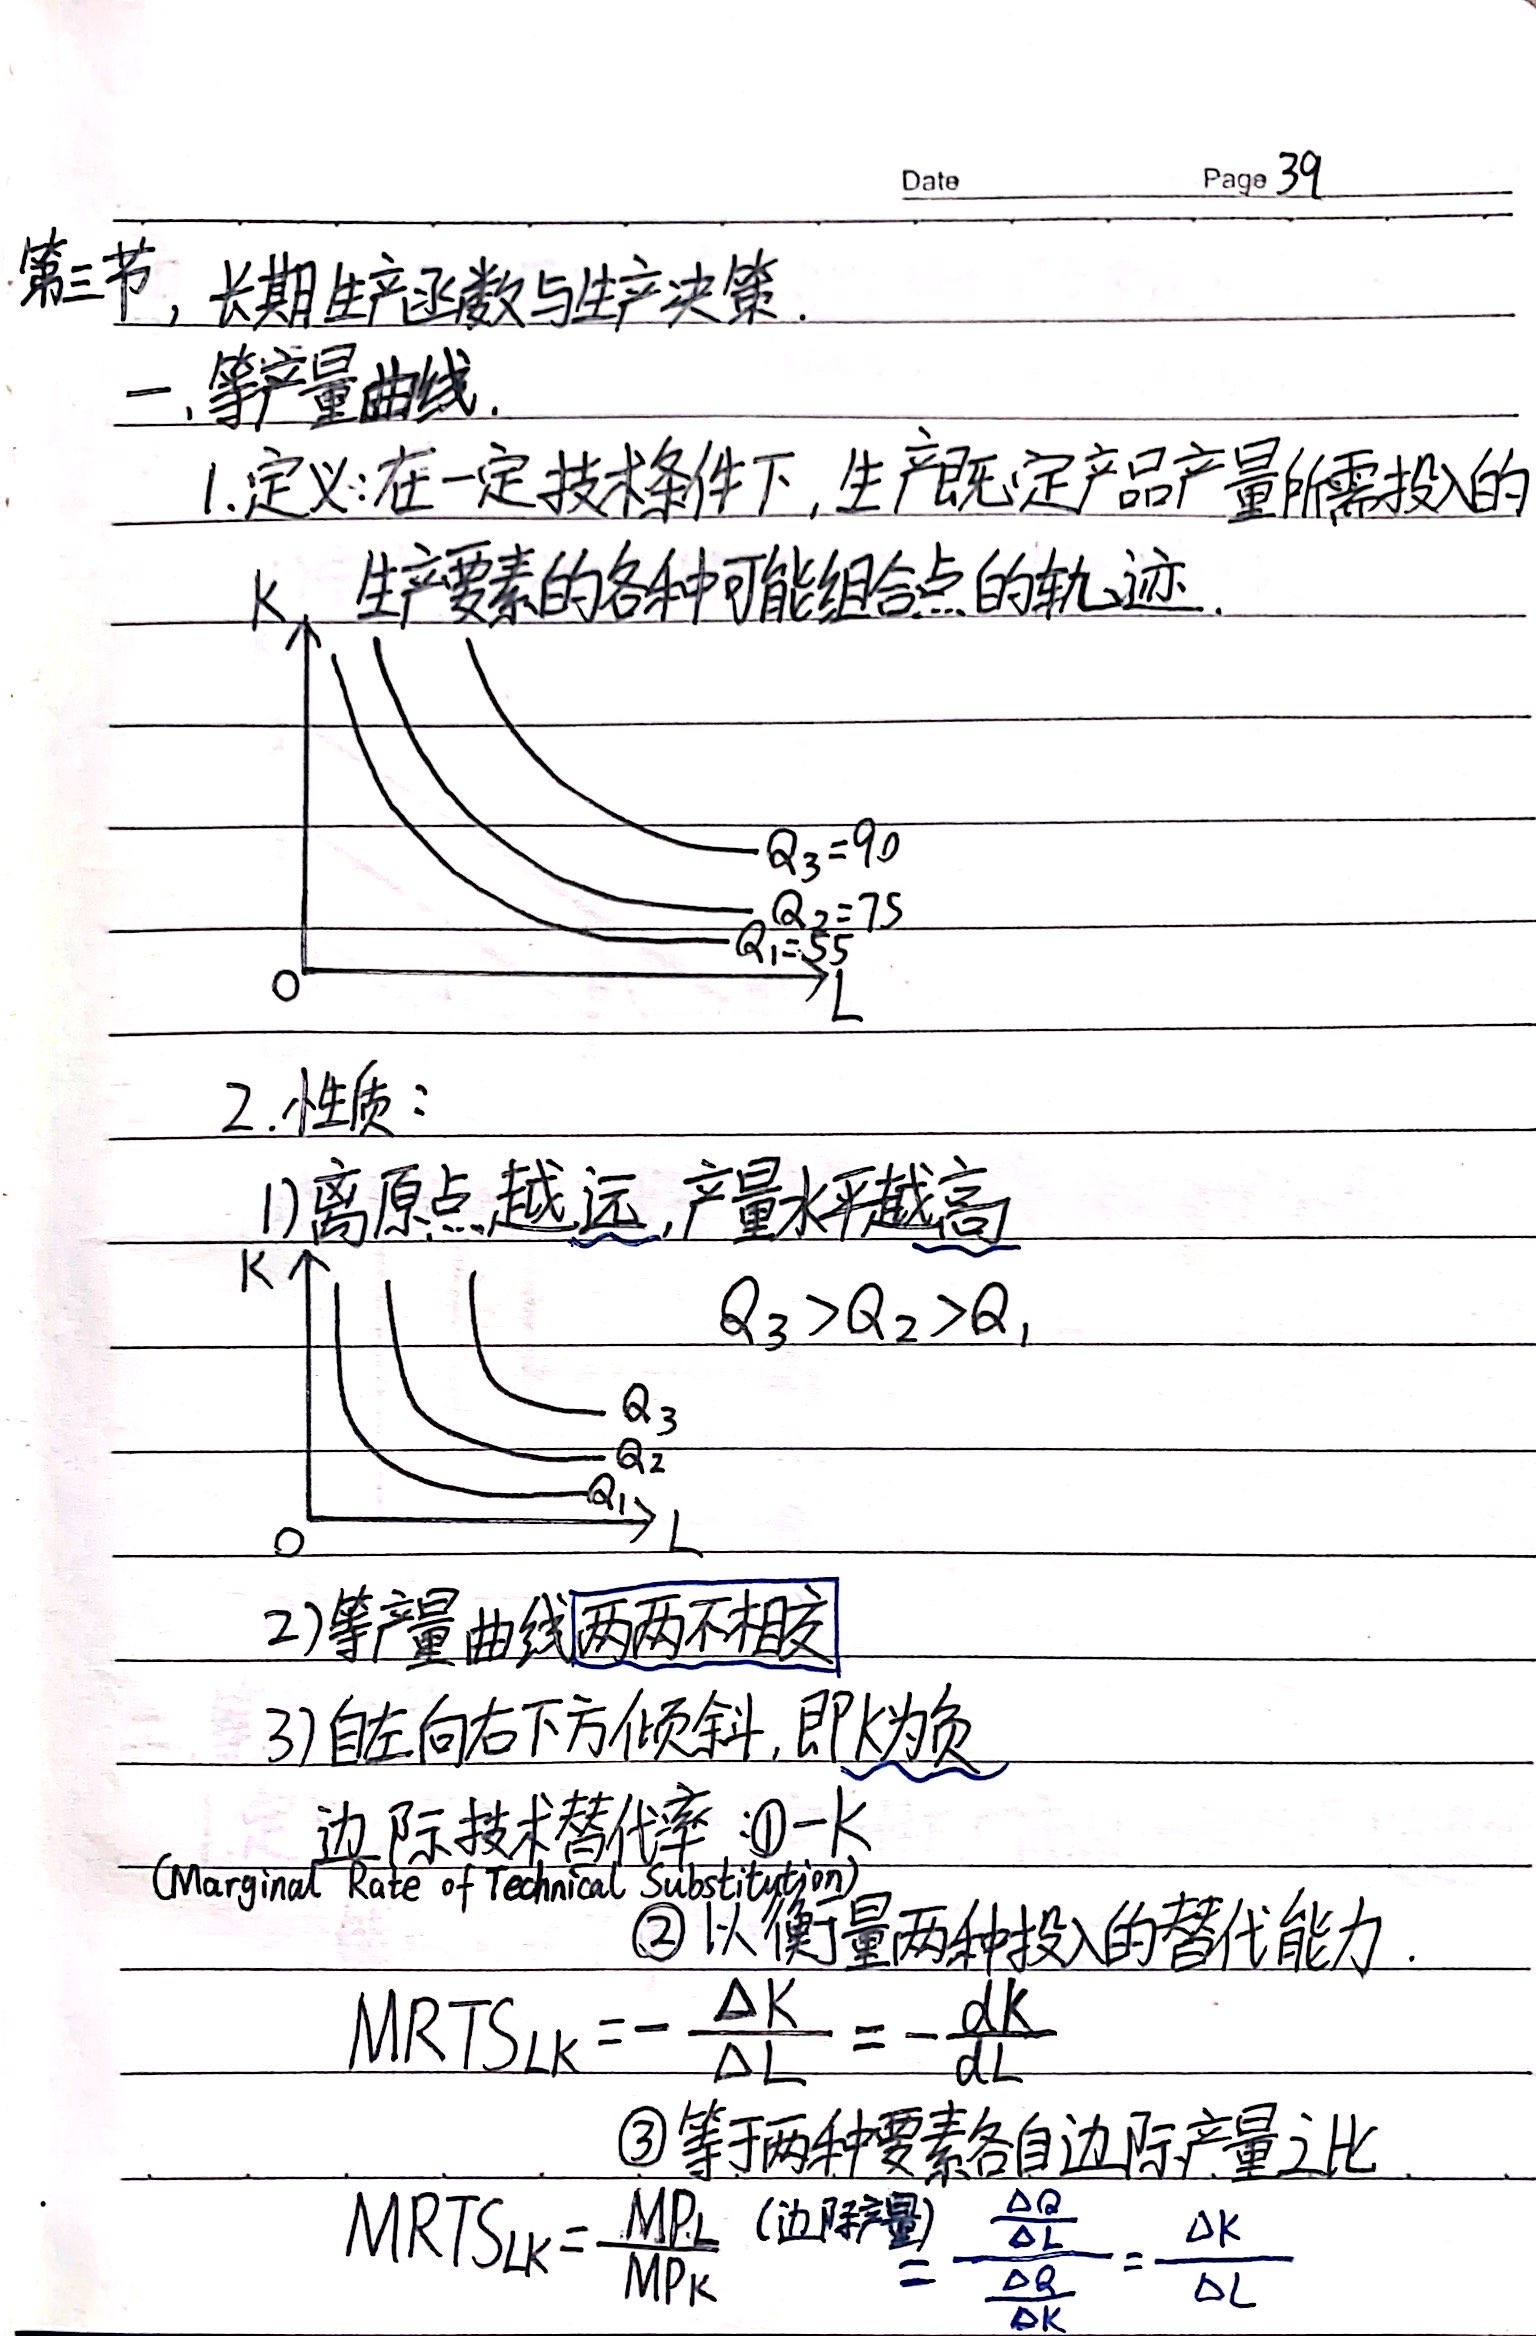 Date Page 39
第三节, 长期生产函数与生产决策.
一、等产量曲线.
1.定义:在一定技术条件下,生产既定产品产量所需投入的
生产要素的各种可能组合点的轨迹.
K
Q₃=90
Q₂=75
Q₁=55
O L
2.性质:
1)离原点越远,产量水平越高
K
Q₃>Q₂>Q₁
Q₃
Q₂
Q₁
O L
2)等产量曲线两两不相交
3)自左向右下方倾斜,即K为负
边际技术替代率:①-K
(Marginal Rate of Technical Substitution)
②以衡量两种投入的替代能力.
MRTS_LK = - ΔK/ΔL = - dK/dL
③等于两种要素各自边际产量之比
MRTS_LK = MP_L/MP_K (边际产量) = (ΔQ/ΔL)/(ΔQ/ΔK) = ΔK/ΔL